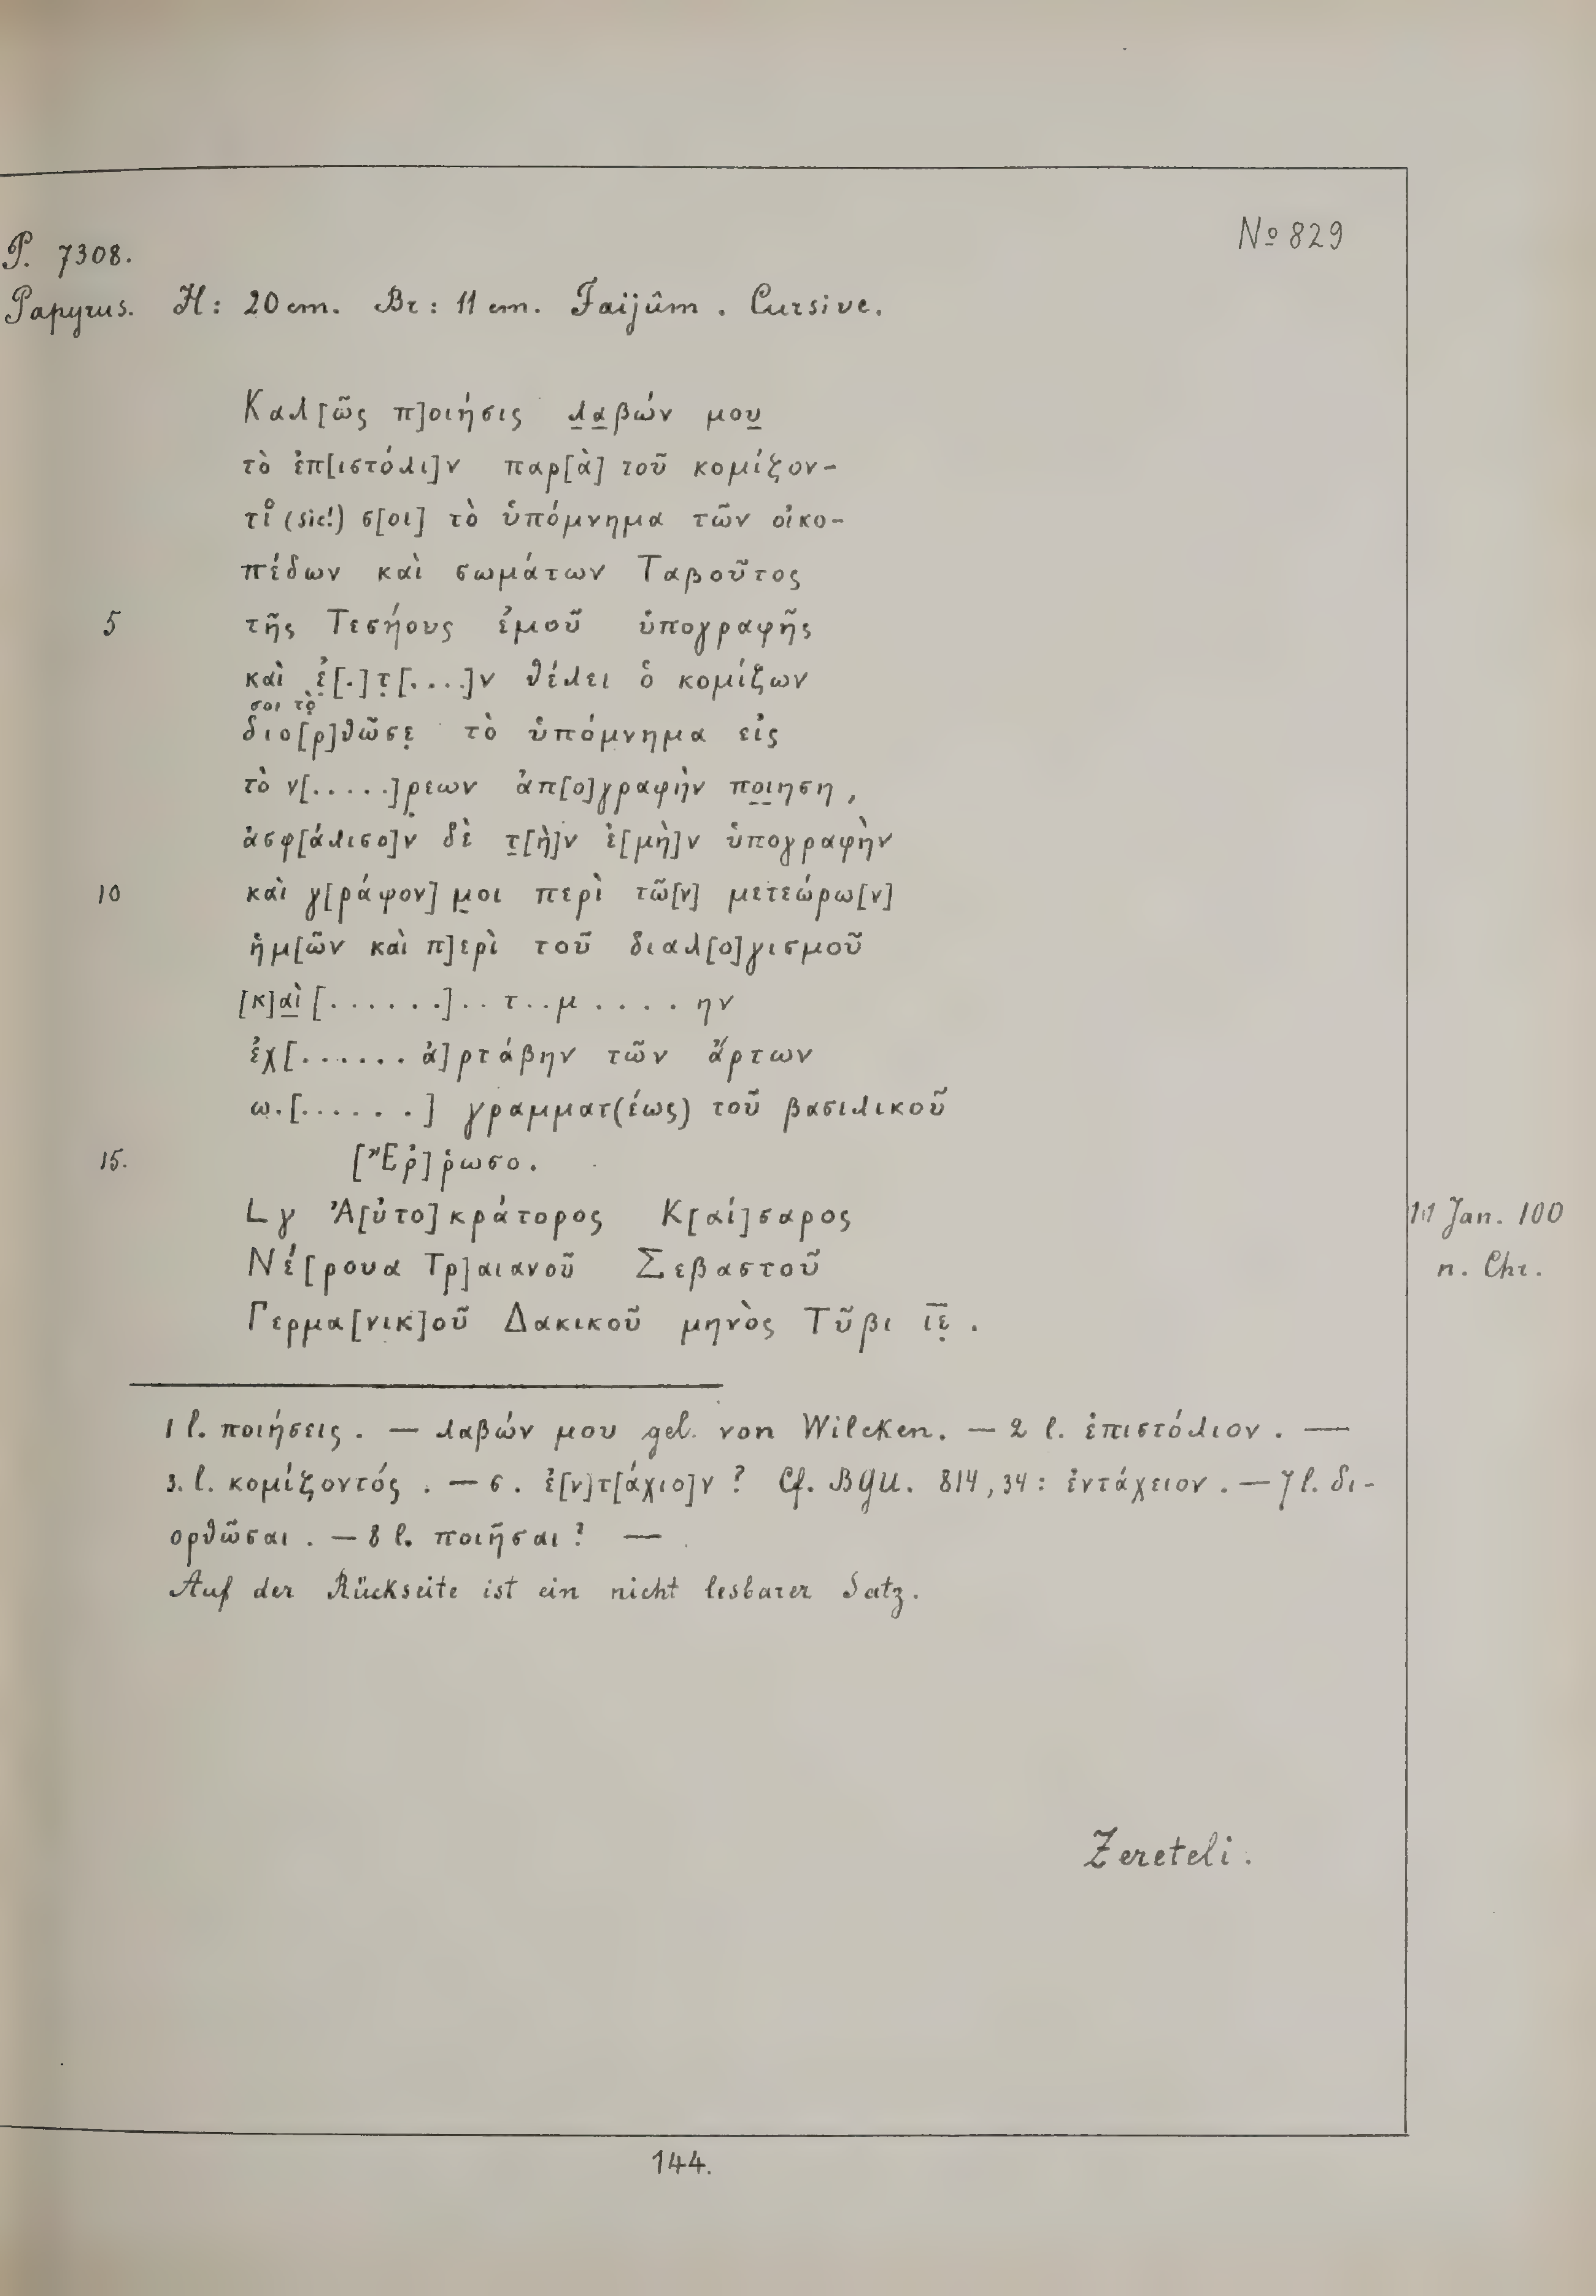 № 829
P. 7308.
Papyrus. H: 20 cm. Br: 11 cm. Faijûm. Cursive.
Καλ[ῶς π]οιήσις λ̲α̲βών μου̲
τὸ ἐπ[ιστόλι]ν παρ[ὰ] τοῦ κομίζον-
τι̊ (sic!) σ[οι] τὸ ὑπόμνημα τῶν οἰκο-
πέδων καὶ σωμάτων Ταβοῦτος
5 τῆς Τεσήους ἐμοῦ ὑπογραφῆς
καὶ ἐ̣[.]τ̣[....]ν θέλει ὁ κομίζων
σοι τὸ̣
διο[ρ]θῶσε̣ τὸ ὑπόμνημα εἰς
τὸ ν[.....]ρ̣εων ἀπ[ο]γραφὴν πο̲ι̲ηση,
ἀσφ[άλισο]ν̇ δὲ τ̲[ὴ]ν ἐ[μὴ]ν ὑπογραφὴν
10 καὶ γ[ράψον] μ̲οι περὶ τῶ[ν] μετεώρω[ν]
ἡμ[ῶν καὶ π]ερὶ τοῦ διαλ[ο]γισμοῦ
[κ]α̲ὶ̲ [......].. τ..μ....ην
ἐχ[...... ἀ]ρτάβην τῶν ἄρτων
ω.[......] γραμματ(έως) τοῦ βασιλικοῦ
15. [Ἐῤ]ῥωσο.
L γ Ἀ[ὐτο]κράτορος Κ[αί]σαρος 11 Jan. 100
Νέ[ρουα Τρ]αιανοῦ Σεβαστοῦ n. Chr.
Γερμα[νικ]οῦ Δακικοῦ μηνὸς Τῦβι ι̅ε̣̅.
1 l. ποιήσεις. — λαβών μου gel. von Wilcken. — 2 l. ἐπιστόλιον. —
3. l. κομίζοντός. — 6. ἐ[ν]τ[άχιο]ν? Cf. BGU. 814, 34: ἐντάχειον. — 7 l. δι-
ορθῶσαι. — 8 l. ποιῆσαι? —
Auf der Rückseite ist ein nicht lesbarer Satz.
Zereteli.
144.